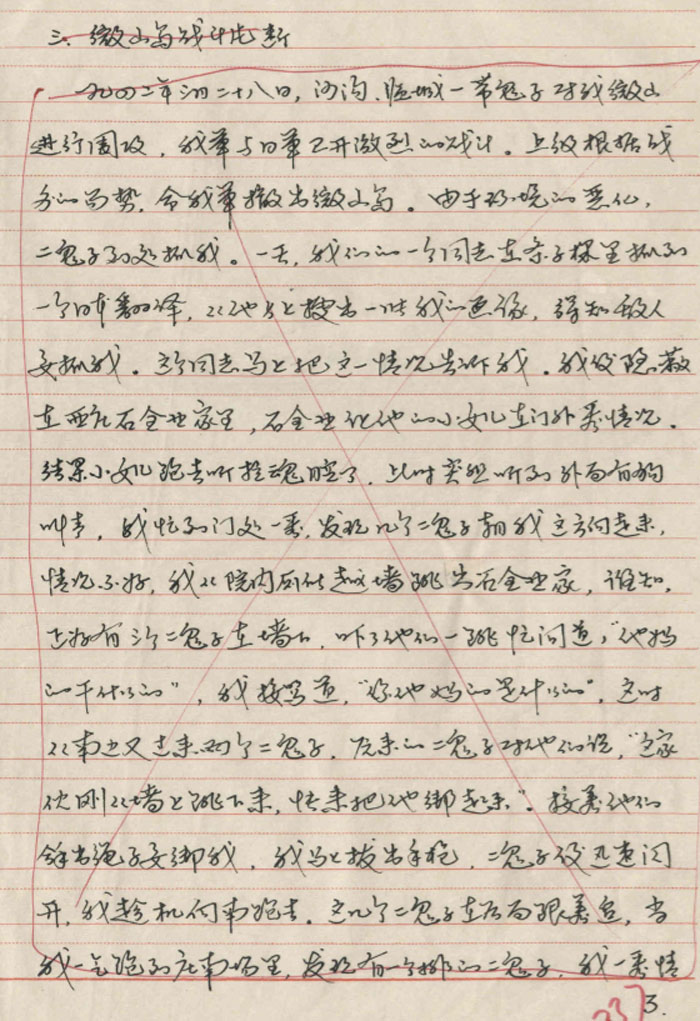 三、微山岛战斗片断
一九四二年三月二十八日，沙沟、临城一带鬼子对我微山
进行围攻，我军与日军已开激烈的战斗。上级根据战
务的局势，令我军撤出微山岛。由于环境的恶化，
二鬼子到处抓我。一天，我们的一个同志在条子棵里抓到
一个日本翻译，从他身上搜出一此我的画像，得知敌人
要抓我。这个同志马上把这一情况告诉我。我便隐蔽
在西庄石全业家里，石全业让他的小女儿在门外看情况。
结果小女儿跑去听拉魂腔了，此时突然听到外面有狗
叫声，我忙到门处一看，发现几个二鬼子朝我这方向走来，
情况不好，我从院内后处越墙跳出石全业家，谁知，
正好有三个二鬼子在墙下，吓了他们一跳忙问道，"他妈
的干什么的"，我接骂道，"你他妈的是什么的"。这时
从南边又过来两个二鬼子，后来的二鬼子对他们说，"这家
伙刚从墙上跳下来，快来把他绑起来"。接着他们
拿出绳子要绑我，我马上拔出手枪，二鬼子便迅速闪
开，我趁机向南跑去。这几个二鬼子在后面跟着追，当
我一气跑到庄南场里，发现有一个排的二鬼子，我一看情
237
3.